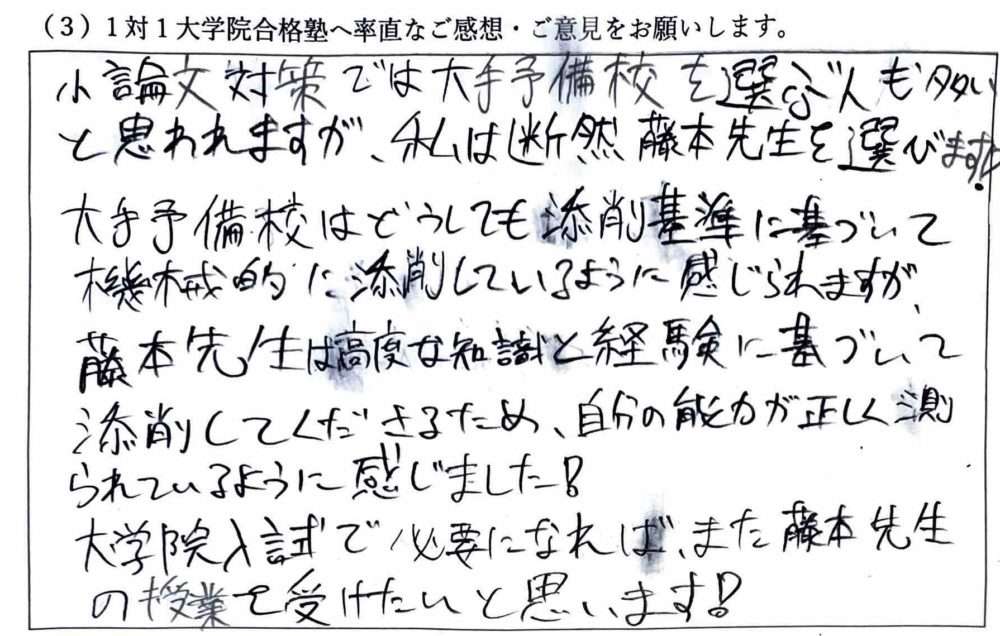 （3）1対1大学院合格塾へ率直なご感想・ご意見をお願いします。
小論文対策では大手予備校を選ぶ人も多い
と思われますが、私は断然藤本先生を選びます！
大手予備校はどうしても添削基準に基づいて
機械的に添削しているように感じられますが、
藤本先生は高度な知識と経験に基づいて
添削してくださるため、自分の能力が正しく測
られているように感じました！
大学院入試で必要になれば、また藤本先生
の授業を受けたいと思います！